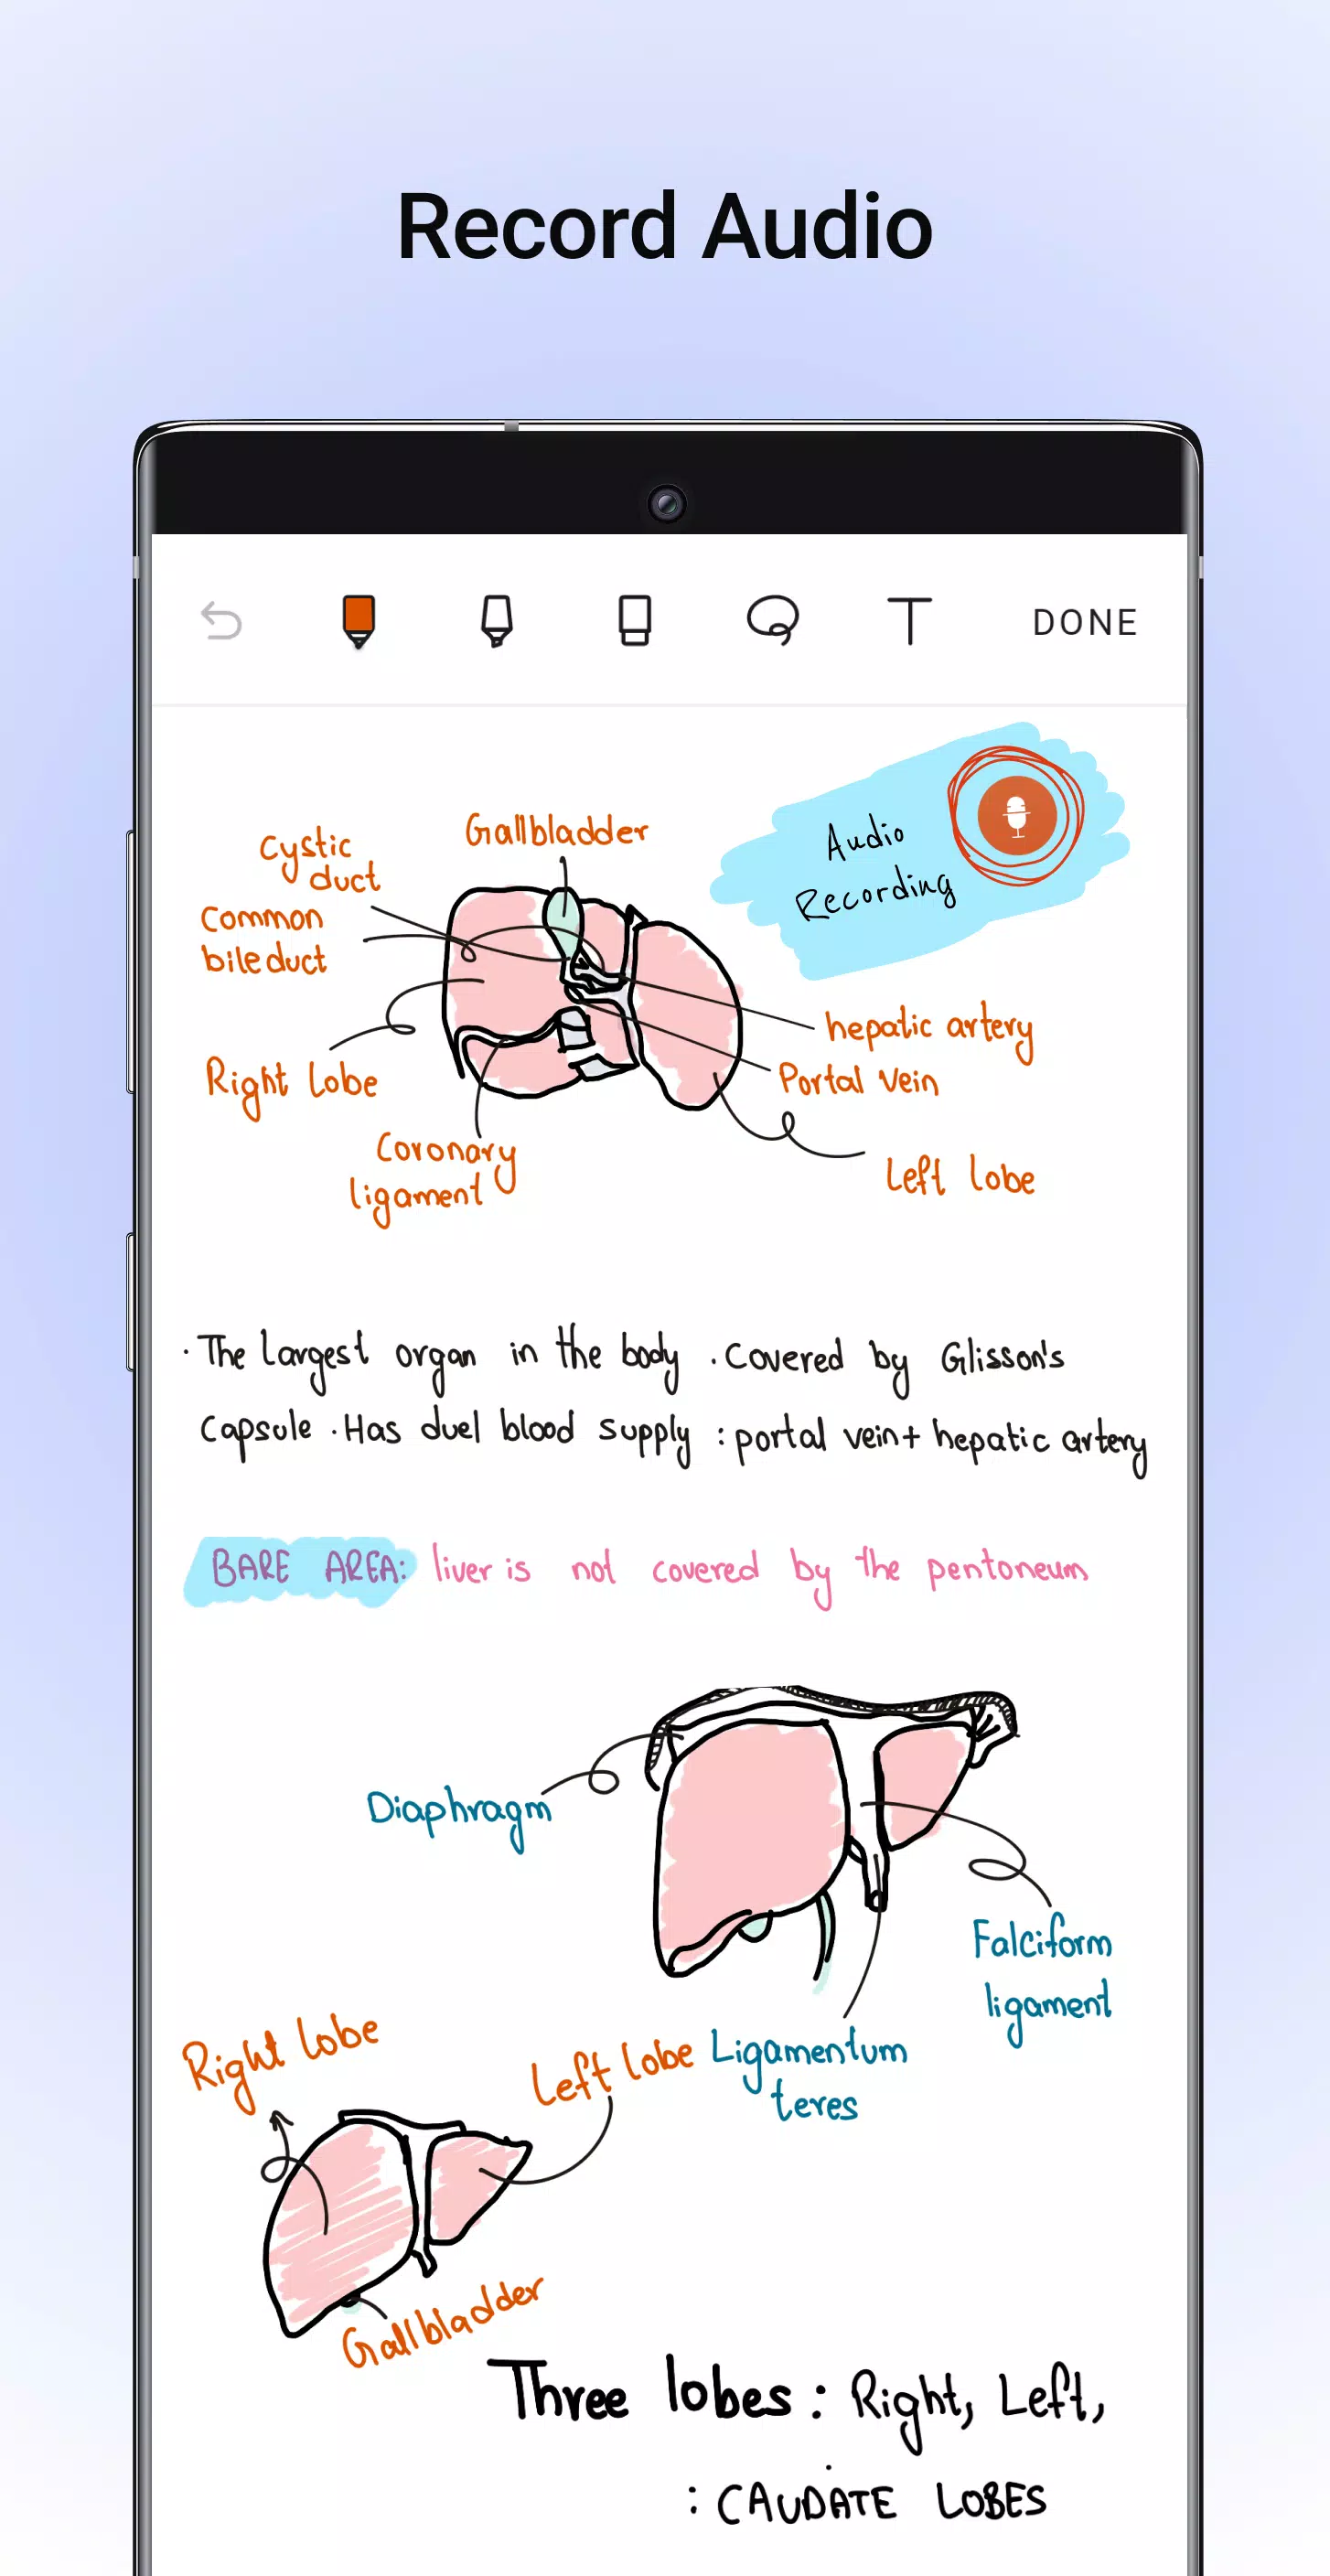 Record Audio
DONE
Audio
Recording
Gallbladder
Cystic
duct
Common
bile duct
hepatic artery
Right lobe
Portal vein
Coronary
ligament
Left lobe
· The largest organ in the body . Covered by Glisson's
Capsule . Has duel blood supply : portal vein + hepatic artery
BARE AREA: liver is not covered by the pentoneum
Diaphragm
Falciform
ligament
Right lobe
Left lobe
Ligamentum
teres
Gallbladder
Three lobes : Right, Left,
: CAUDATE LOBES